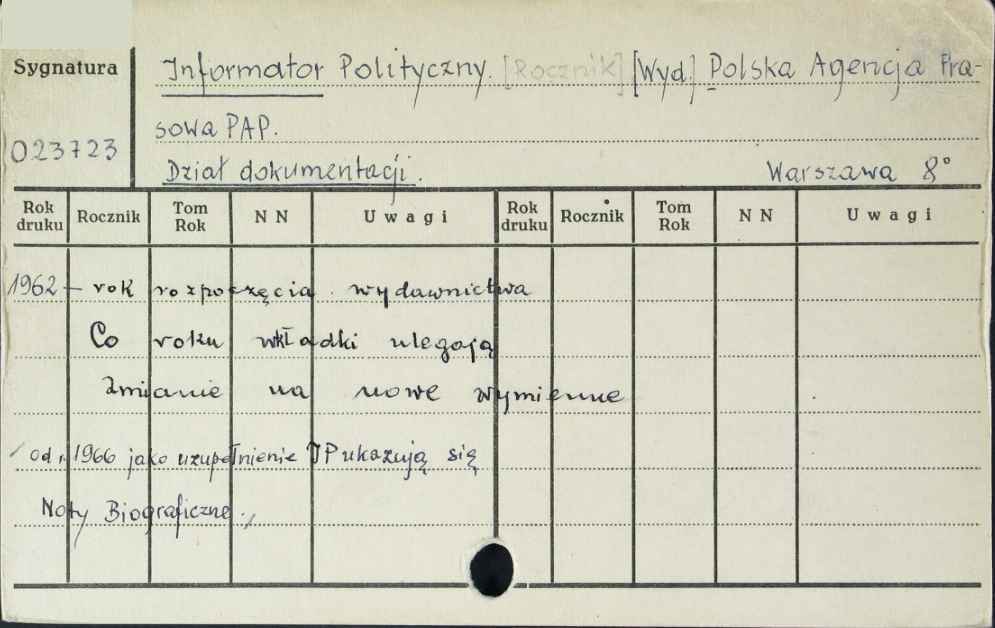 Sygnatura
Informator Polityczny. [Rocznik] [Wyd.] Polska Agencja Pra-
sowa PAP.
023723
Dział dokumentacji. Warszawa 8°
Rok druku Rocznik Tom Rok NN Uwagi Rok druku Rocznik Tom Rok NN Uwagi
1962 – rok rozpoczęcia wydawnictwa
Co roku wkładki ulegają
zmianie na nowe wymienne
/ od r. 1966 jako uzupełnienie IP ukazują się
Noty Biograficzne. /